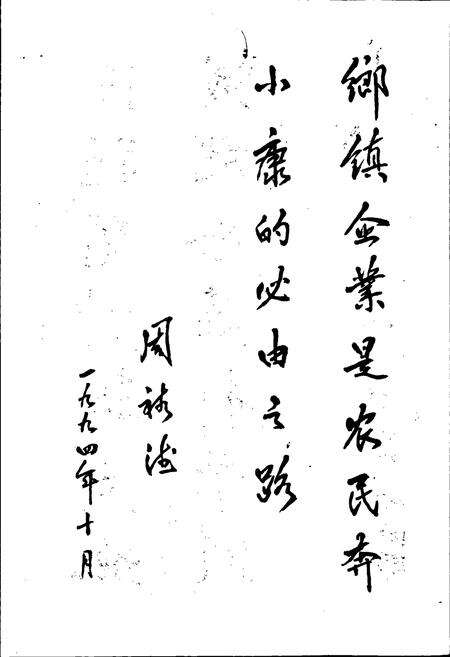 鄉镇企業是农民奔
小康的必由之路
周
一九九四年十月